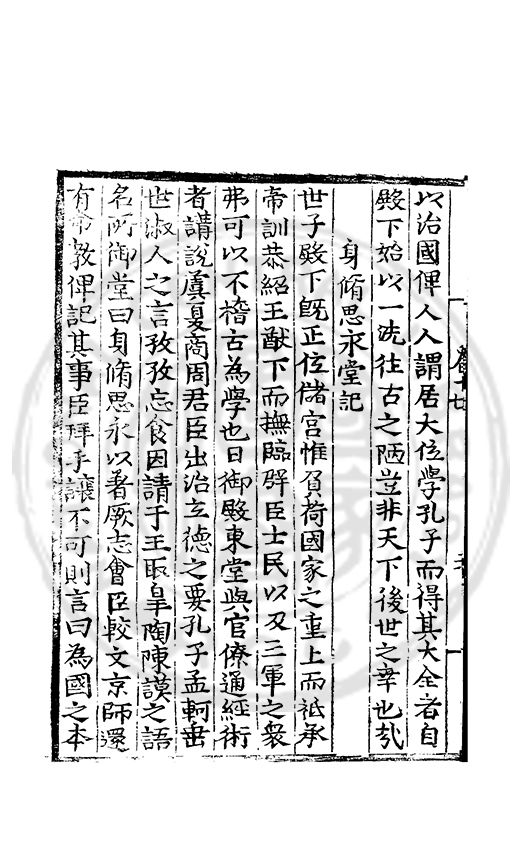 以治國俾人人謂居大位學孔子而得其大全者自
殿下始以一洗往古之陋豈非天下後世之幸也㢤
身脩思永堂記
世子殿下旣正位儲宫惟負荷國家之重上而祗承
帝訓恭紹王猷下而撫臨群臣士民以及三軍之衆
弗可以不稽古為學也日御殿東堂與官僚通經術
者講說虞夏商周君臣出治立德之要孔子孟軻垂
世淑人之言孜孜忘食因請于王取皐陶陳謨之語
名所御堂曰身脩思永以著厥志會臣較文京師還
有命敎俾記其事臣拜手讓不可則言曰為國之本